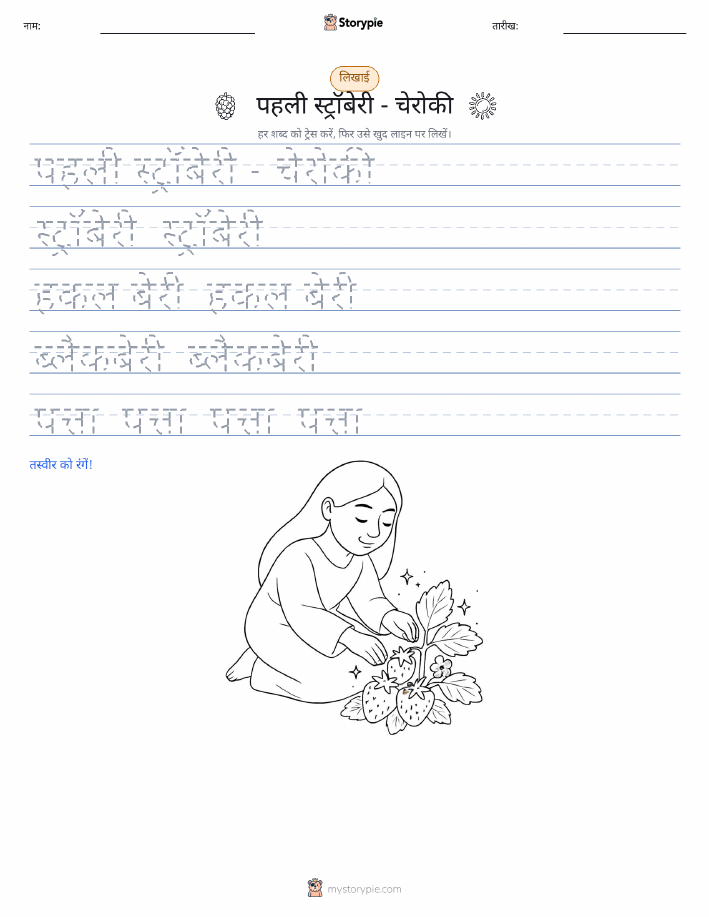 नाम:
Storypie
तारीख:
लिखाई
पहली स्ट्रॉबेरी - चेरोकी
हर शब्द को ट्रेस करें, फिर उसे खुद लाइन पर लिखें।
पहली स्ट्रॉबेरी - चेरोकी
स्ट्रॉबेरी स्ट्रॉबेरी
हकल बेरी हकल बेरी
ब्लैकबेरी ब्लैकबेरी
पत्ता पत्ता पत्ता पत्ता
तस्वीर को रंगें!
mystorypie.com